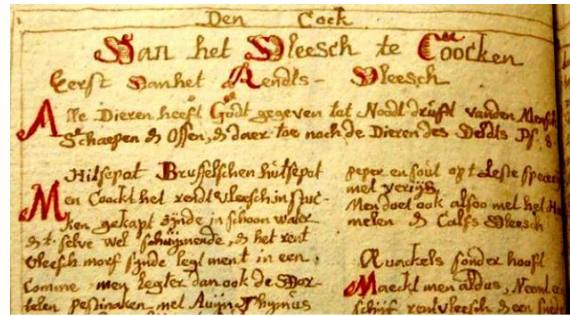 Den Cock
Van het Vleesch te Coocken
Eerst Vanhet Rendts - Vleesch
Alle Dieren heeft Godt gegeven tot Noodtdruft vanden Mensch
Schaepen & Ossen, & daer toe noch de Dieren des Veldts Ps. 8
Hutsepot Brusselschen hutsepot
Men Coockt het rendtvleesch in stuc-
ken gekapt zynde in schoon water
& t'selve wel schuymende, & het rent
vleesch morf synde legt ment in een
comme, men legter dan ook de Wor
telen pestinaken met Auijn Thymus
peper en sout op t Leste
met verjys
Men doet ook alsoo met het
melen & Calfs Vleesch
Quackels sonder hooft
Maeckt men aldus, Neemt
schijf rentvleesch & een